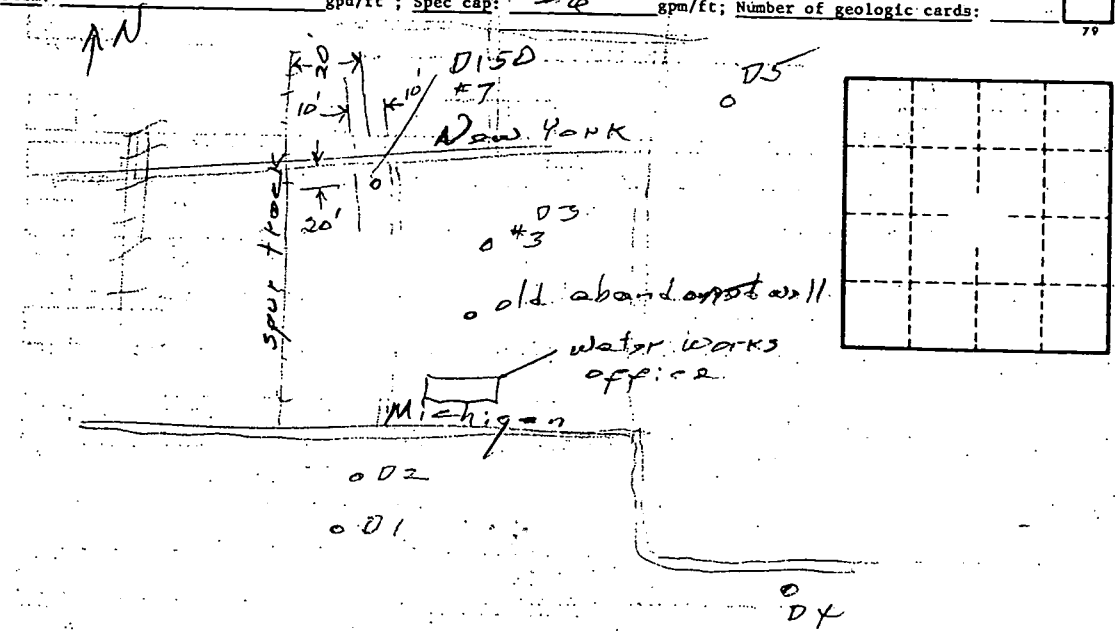 gpd/ft ; Spec cap: gpm/ft; Number of geologic cards:
79
N
20'
D15D
#7
10'
10'
D5
New York
20'
D3
#3
spur track
old abandoned well
water works
office
Michigan
D2
D1
D4